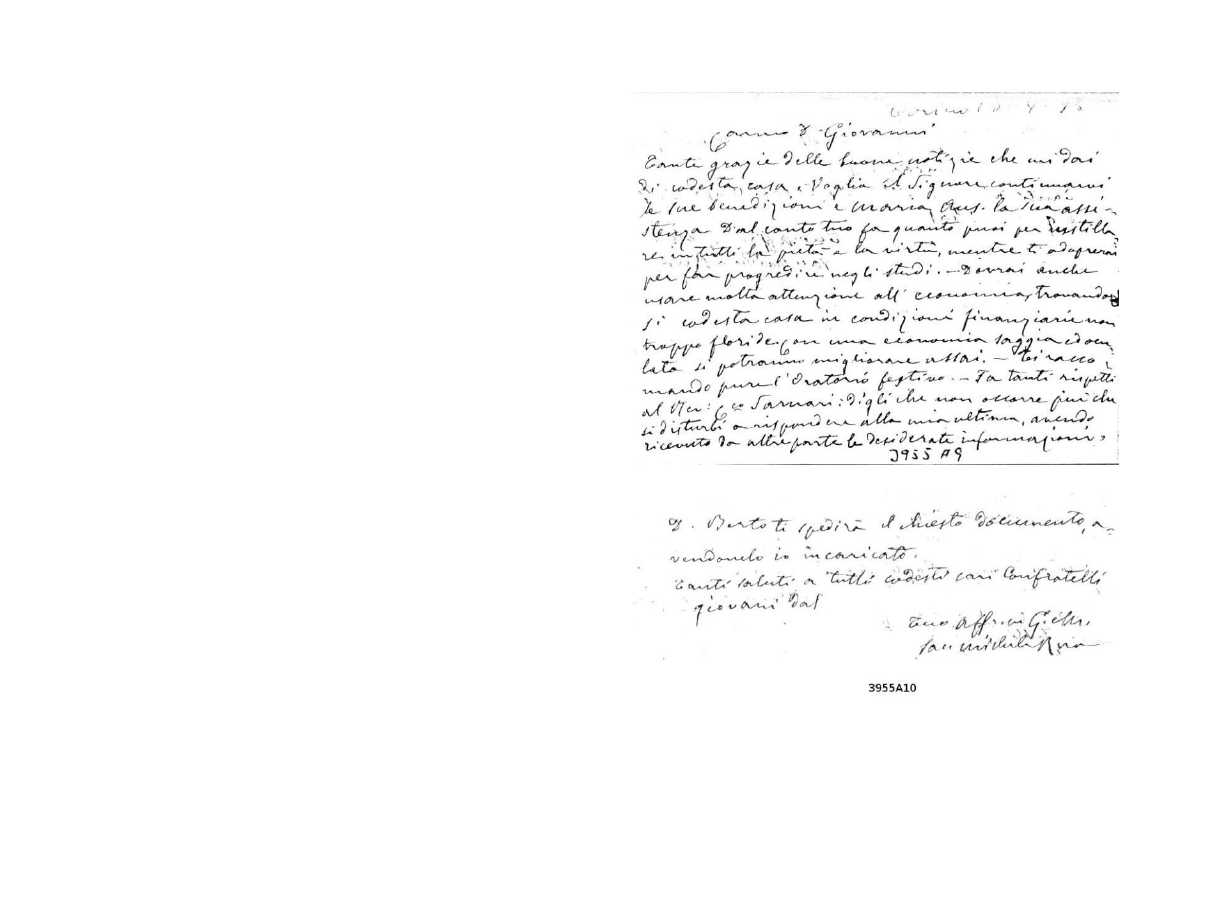 Torino
Carmo D. Giovanni
Tante grazie delle buone notizie che mi dai
di codesta casa. Voglia il Signore continuarvi
le sue benedizioni e Maria Aus. la sua assi-
stenza. Dal canto tuo fa quanto puoi per instilla
re in tutti la pietà e la virtù, mentre ti adoprerai
per far progredire negli studi. – Dovrai anche
usare molta attenzione all' economia, trovando
si codesta casa in condizioni finanziarie non
troppo floride. Con una economia saggia ed ocu
lata si potranno migliorare assai. – Ti racco
mando pure l'Oratorio festivo. – Fa tanti rispetti
al digli che non occorre più che
si disturbi a rispondere alla mia ultima, avendo
ricevuto da altre parte le desiderate informazioni,
3955 A9
D. Berto ti spedirà il chiesto documento, a-
vendonelo io incaricato.
Tanti saluti a tutti codesti cari Confratelli
giovani dal
tuo Aff. in G. e M.
Sac Michele Rua
3955A10